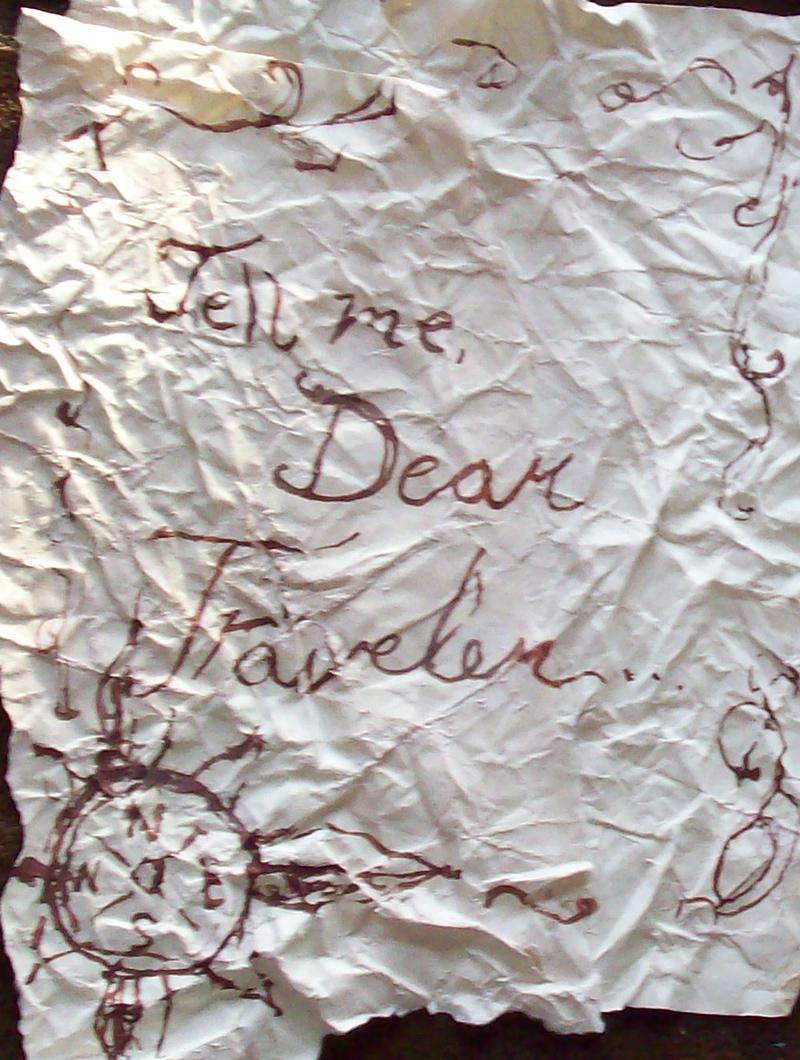 Tell me,
Dear
Traveler...
N
W E
S